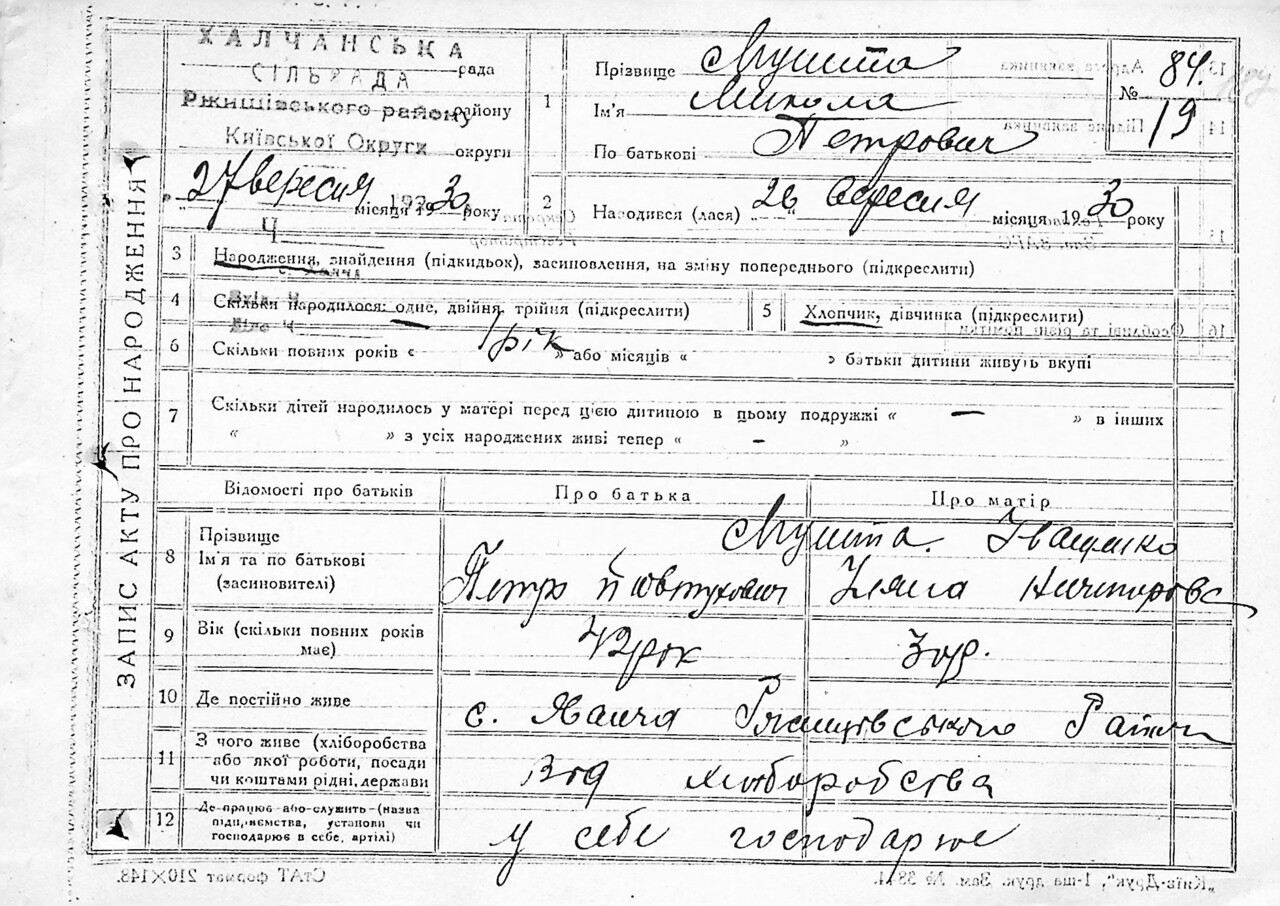 ХАЛЧАНСЬКА
СІЛЬРАДА рада
Ржищівського району району
Київської Округи округи
27 вересня 1930
місяця 19 року
Ч
ЗАПИС АКТУ ПРО НАРОДЖЕННЯ
1 Прізвище Мушта
Ім'я Микола
По батькові Петрович
№ 84
19
2 Народився (лася) „26 " вересня місяця 1930 року
3 Народження, знайдення (підкидьок), засиновлення, на зміну попереднього (підкреслити)
4 Скільки народилося: одне, двійня, трійня (підкреслити)
5 Хлопчик, дівчинка (підкреслити)
6 Скільки повних років « 1 рік » або місяців « » батьки дитини живуть вкупі
7 Скільки дітей народилось у матері перед цією дитиною в цьому подружжі « — » в інших
« » з усіх народжених живі тепер « - »
Відомості про батьків Про батька Про матір
8 Прізвище Мушта. Іващенко
Ім'я та по батькові Петро Уляна
(засиновителі)
9 Вік (скільки повних років має) 42 рок 30 р.
10 Де постійно живе с. Ржищівського Район
11 З чого живе (хліборобства
або якої роботи, посади
чи коштами рідні, держави
зод хліборобства
12 Де працює або служить (назва
підприємства, установи чи
господарює в себе, артілі)
у себе господарює
СтАТ формат 210×148.
„Київ-Друк", 1-ша друк. Зам. №